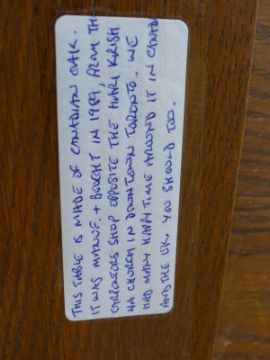 THIS TABLE IS MADE OF CANADIAN OAK.
IT WAS MANUF. + BOUGHT IN 1989, FROM TH
OPERATORS SHOP OPPOSITE THE HARI KRISH
NA CHURCH IN DOWNTOWN TORONTO. WE
HAD MANY HAPPY TIME AROUND IT IN CANAD
AND THE UK. YOU SHOULD TOO.